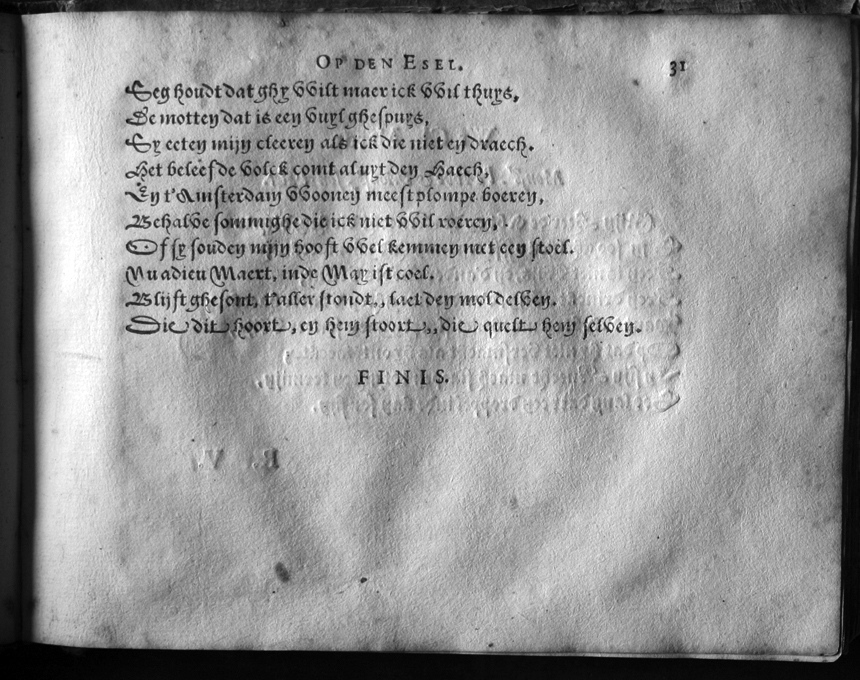 OP DEN ESEL. 31
Seg houdt dat ghy VVilt maer ick VVil thuys,
De motten dat is een vuyl ghespuys,
Sy eeten mijn cleeren als ick die niet en draech.
Het beleefde volck comt al uyt den Haech,
En t'Amsterdam VVoonen meest plompe boeren,
Behalve sommighe die ick niet VVil roeren,
Of sy souden mijn hooft VVel kemmen met een stoel.
Nu adieu Maert, inde May ist coel.
Blijft ghesont, t'aller stondt,, laet den mol delven.
Die dit hoort, en hem stoort,, die quelt hem selven.
FINIS.